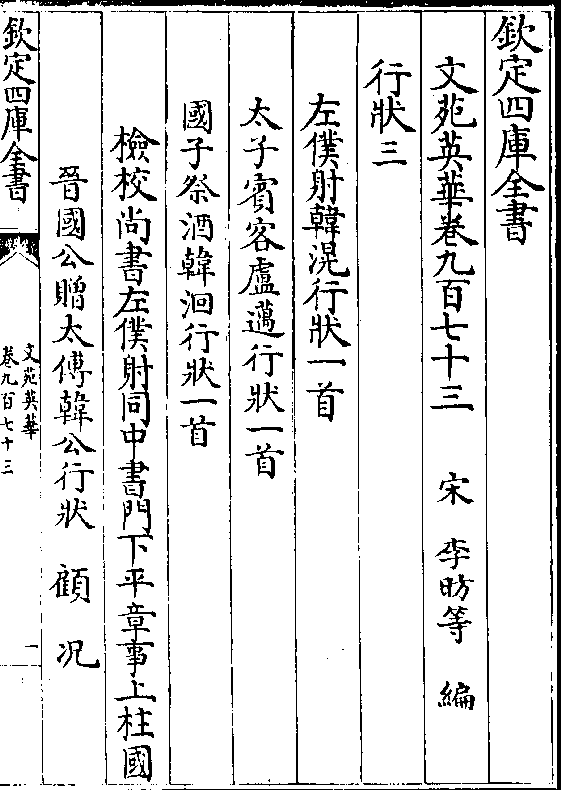 欽定四庫全書
文苑英華卷九百七十三　宋　李昉等　編
行狀三
左僕射韓滉行狀一首
太子賓客盧邁行狀一首
國子祭酒韓洄行狀一首
檢校尚書左僕射同中書門下平章事上柱國
晉國公贈太傅韓公行狀　顧況
欽定四庫全書
文苑英華
卷九百七十三
一